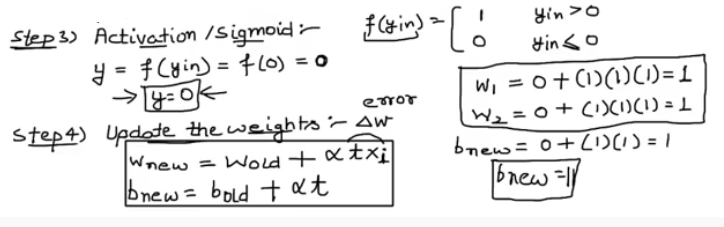 Step3) Activation /Sigmoid :-
y = f(yin) = f(0) = 0
→ y=0 ←
f(yin) = { 1 yin > 0
0 yin ≤ 0
Step4) Update the weights :- Δw
error
Wnew = Wold + α t xi
bnew = bold + αt
W1 = 0 + (1)(1)(1) = 1
W2 = 0 + (1)(1)(1) = 1
bnew = 0 + (1)(1) = 1
bnew = 1